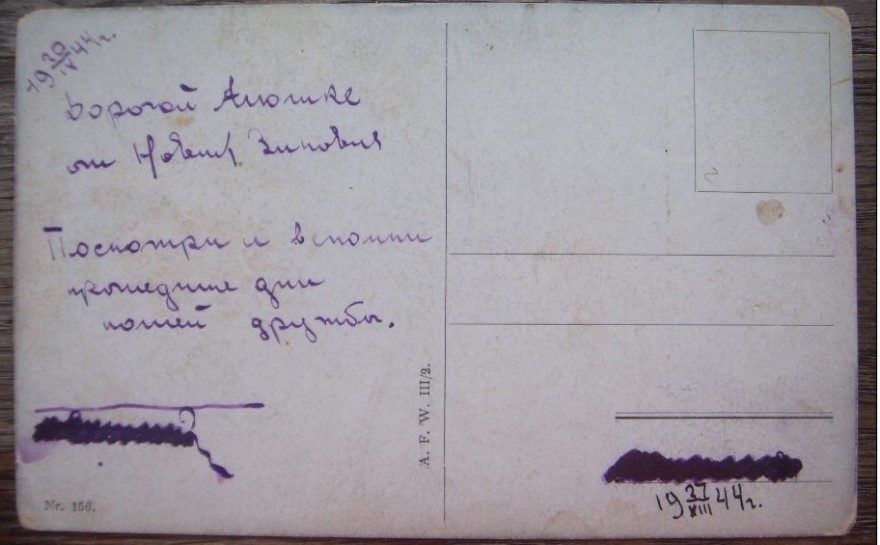 19 30/IV 44 г.
Дорогой Анюшке
от Зиновия
Посмотри и вспомни
прошедшие дни
нашей дружбы.
Nr. 156.
A. F. W. III/2.
19 37/XIII 44 г.